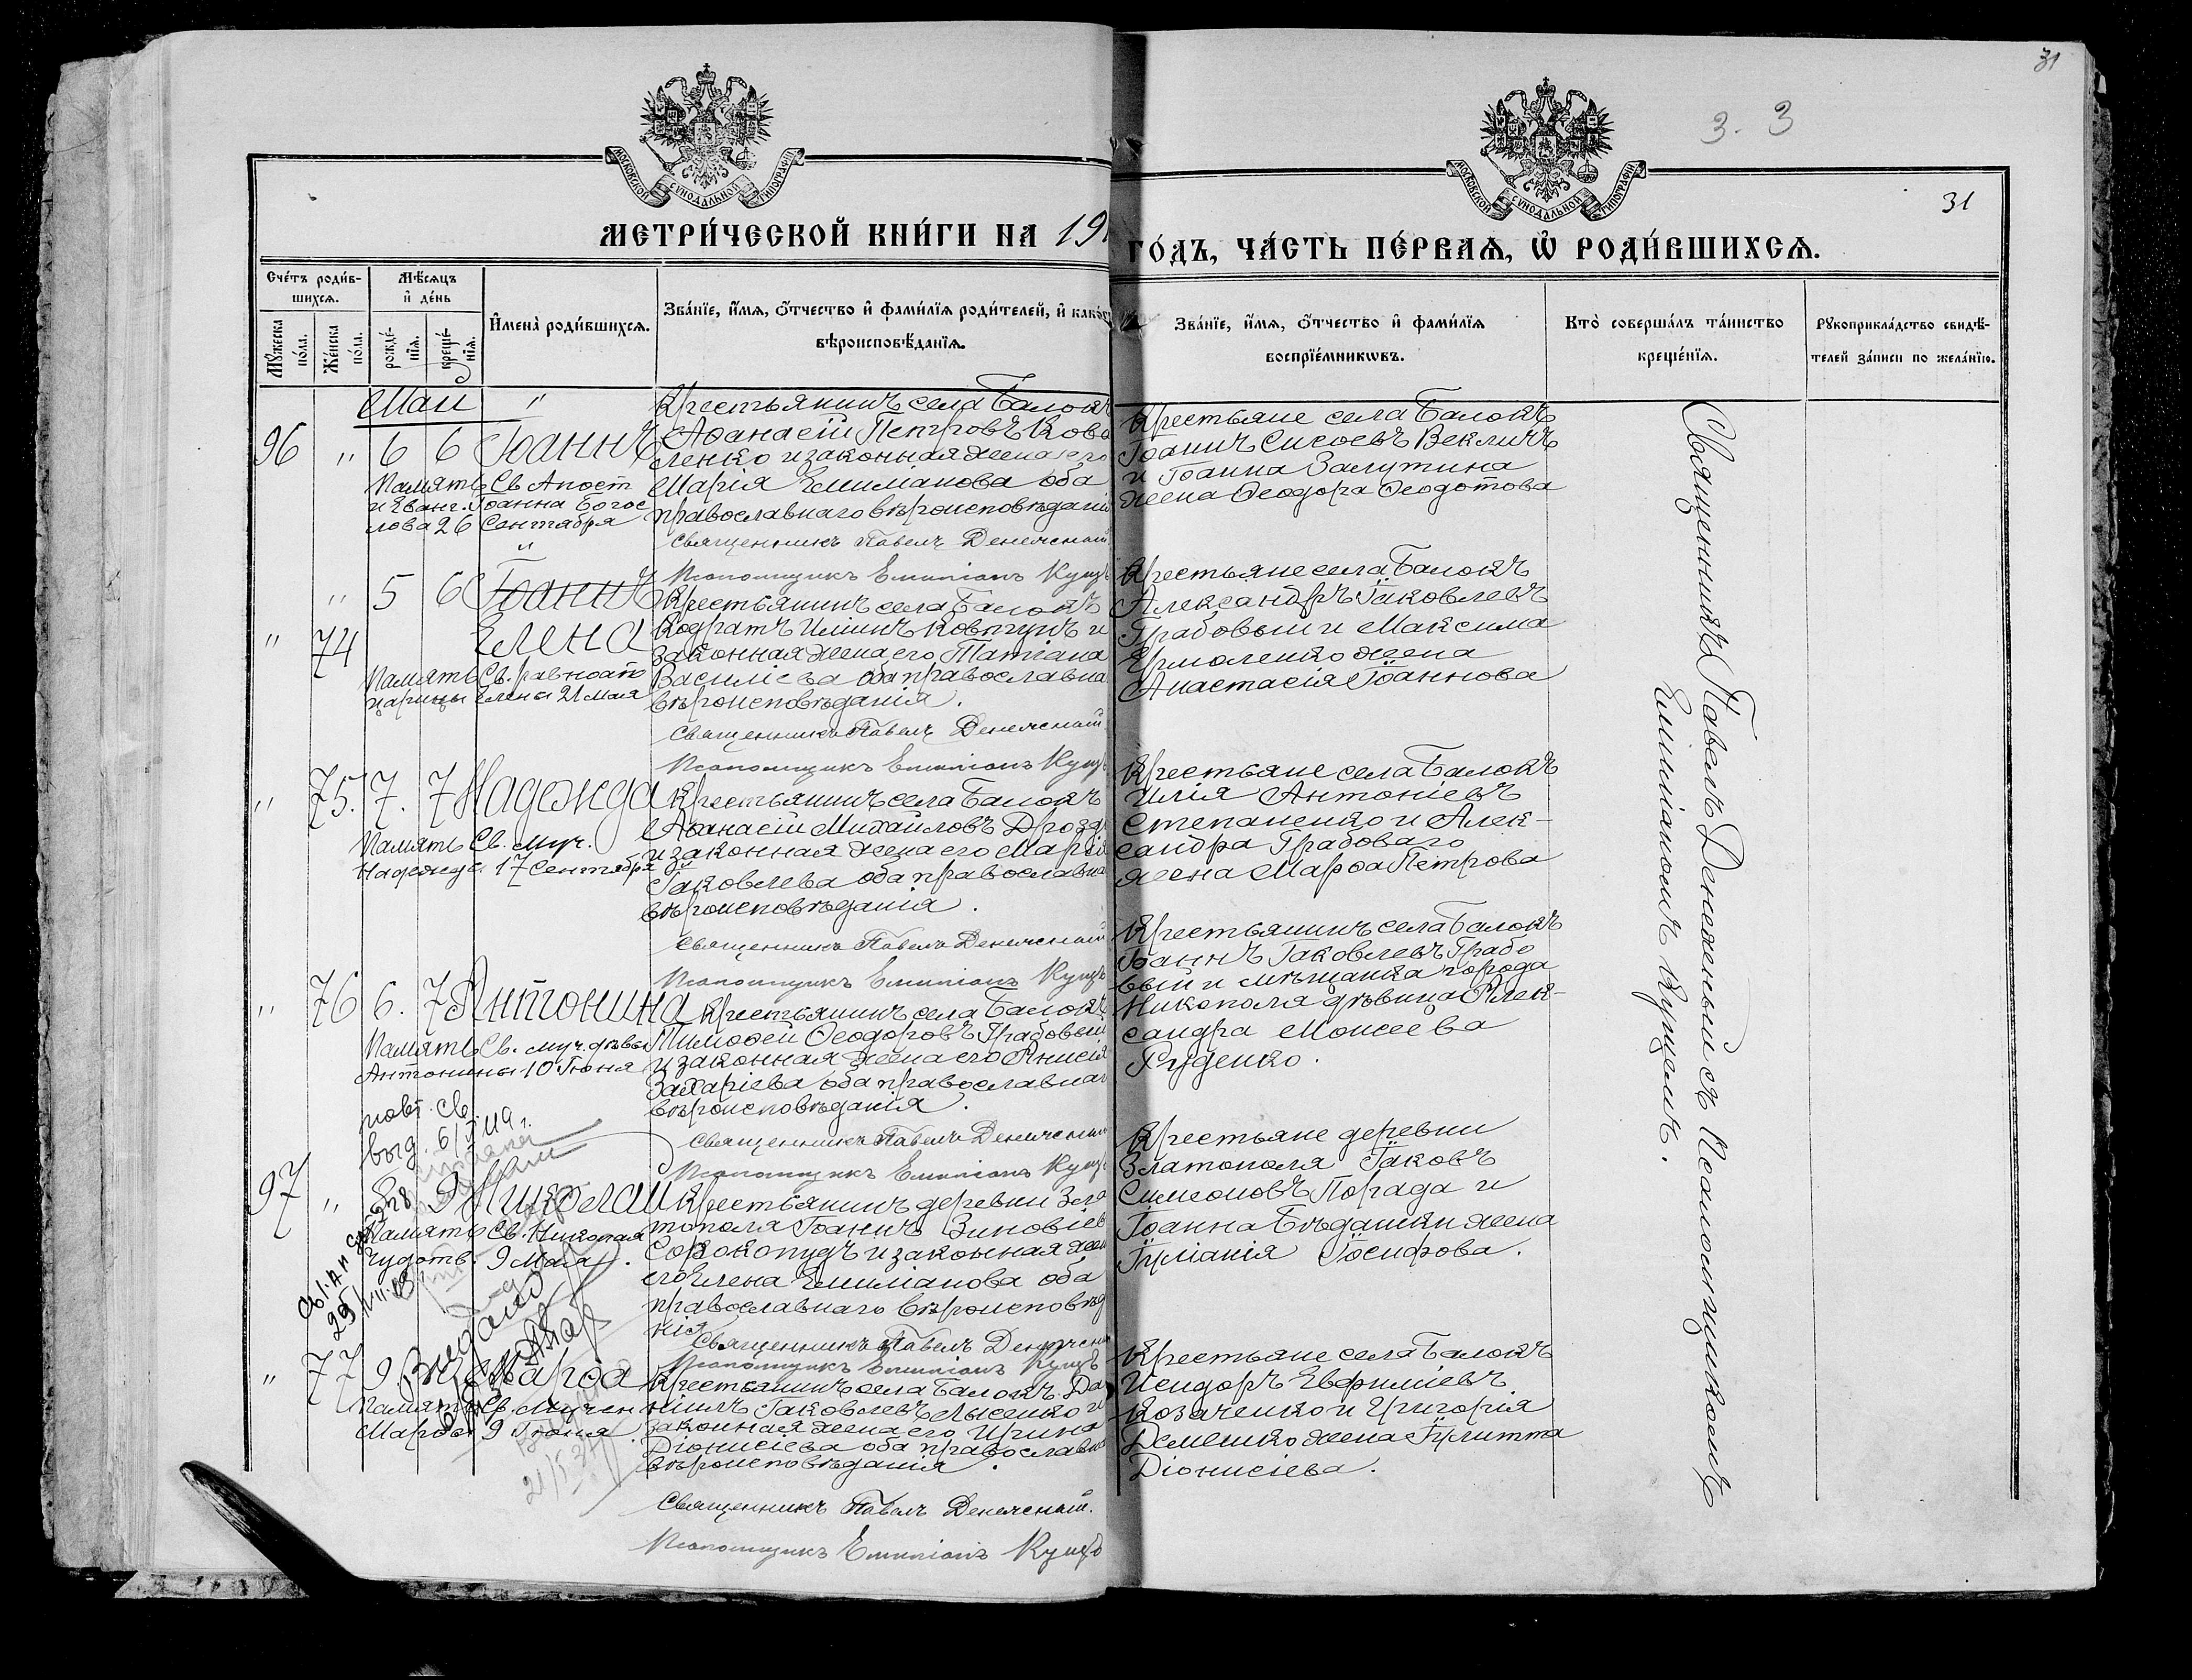 31
3. 3
МОСКОВСКОЙ СѴНОДАЛЬНОЙ ТИПОГРАФІИ
МОСКОВСКОЙ СѴНОДАЛЬНОЙ ТИПОГРАФІИ
31
МЕТРИ́ЧЕСКОЙ КНИ́ГИ НА 19
ГО́ДЪ, ЧА́СТЬ ПЕ́РВАѦ, Ѽ РОДИ́ВШИХСѦ.
Сче́тъ роди́в-
шихсѧ.
Мѣ́сѧцъ
и҆ де́нь
Мꙋ́жеска
по́ла.
Же́нска
по́ла.
рожде́-
нїѧ.
креще́-
нїѧ.
И҆мена̀ роди́вшихсѧ.
Зва́нїе, и҆́мѧ, ѻ҆́тчество и҆ фами́лїѧ роди́телей, и҆ како́гѡ
вѣроисповѣ́данїѧ.
Зва́нїе, и҆́мѧ, ѻ҆́тчество и҆ фами́лїѧ
воспрїе́мникѡвъ.
Кто̀ соверша́лъ та́инство
креще́нїѧ.
Рꙋкоприкла́дство свидѣ́-
телей за́писи по жела́нїю.
Май "
96 " 6 6 Іоаннъ
Память Св Апост
и Еванг. Іоанна Богос
лова 26 Сентября
Крестьянинъ села Балокъ
Афанасій Петровъ Кова
ленко и законная жена его
Марія Емиліанова оба
православнаго вѣроисповѣданія
Священникъ Павелъ Денежный
Псаломщикъ Емиліанъ Кущъ
Крестьяне села Балокъ
Іоаннъ Сисоевъ Векличъ
и Іоанна Залутина
жена Феодора Феодотова
"
" 5 6 Іоаннъ
" 74 Елена
Память Св. равноап
царицы Елены 21 мая
Крестьянинъ села Балокъ
Кодратъ Иліинъ Ковтунъ и
законная жена его Татіана
Василіева оба православна
вѣроисповѣданія.
Священникъ Павелъ Денежный
Псаломщикъ Емиліанъ Кущъ
Крестьяне села Балокъ
Александръ Іаковлевъ
Грабовый и Максима
Ермоленко жена
Анастасія Іоаннова
" 75. 7. 7 Надежда
Память Св. муч.
Надежды 17 Сентября
Крестьянинъ села Балокъ
Афанасій Михайловъ Дрозд
и законная жена его Марія
Іаковлева оба православна
вѣроисповѣданія.
Священникъ Павелъ Денежный
Псаломщикъ Емиліанъ Кущъ
Крестьяне села Балокъ
Илія Антоніевъ
Степаненко и Алек-
сандра Грабоваго
жена Марфа Петрова
" 76 6. 7 Антонина
Память Св. муч. дѣвы
Антонины 10 Іюня
Крестьянинъ села Балокъ
Тимофей Феодоровъ Грабовый
и законная жена его Анисія
Захаріева оба православнаг
вѣроисповѣданія.
Священникъ Павелъ Денежный
Псаломщикъ Емиліанъ Кущъ
Крестьянинъ села Балокъ
Іоаннъ Іаковлевъ Грабо
вый и мѣщанка города
Никополя дѣвица Алек-
сандра Моисеева
Руденко.
повт. св.
выд.
97 " 8 9 Николай
Память Св. Николая
Чудотв. 9 Мая.
Крестьянинъ деревни Зла
тополя Іоаннъ Зиновіев
Сорокопудъ и законная жена
его Елена Емиліанова оба
православнаго вѣроисповѣда
нія
Священникъ Павелъ Денежный
Псаломщикъ Емиліанъ Кущъ
Крестьяне деревни
Златополя Іаковъ
Симеоновъ Порада и
Іоанна Бѣдашки жена
Іуліанія Іосифова.
" 77 9 Марфа
Память Св. Мучен
Марфы 9 Іюня
Крестьянинъ села Балокъ Да
ніилъ Іаковлевъ Лысенко и
законная жена его Ирина
Діонисіева оба православна
вѣроисповѣданія.
Священникъ Павелъ Денежный.
Псаломщикъ Емиліанъ Кущъ
Крестьяне села Балокъ
Исидоръ Евфиміевъ
Козаченко и Григорія
Деменко жена Іулитта
Діонисіева.
Священникъ Павелъ Денежный съ Псаломщикомъ
Емиліаномъ Кущемъ.